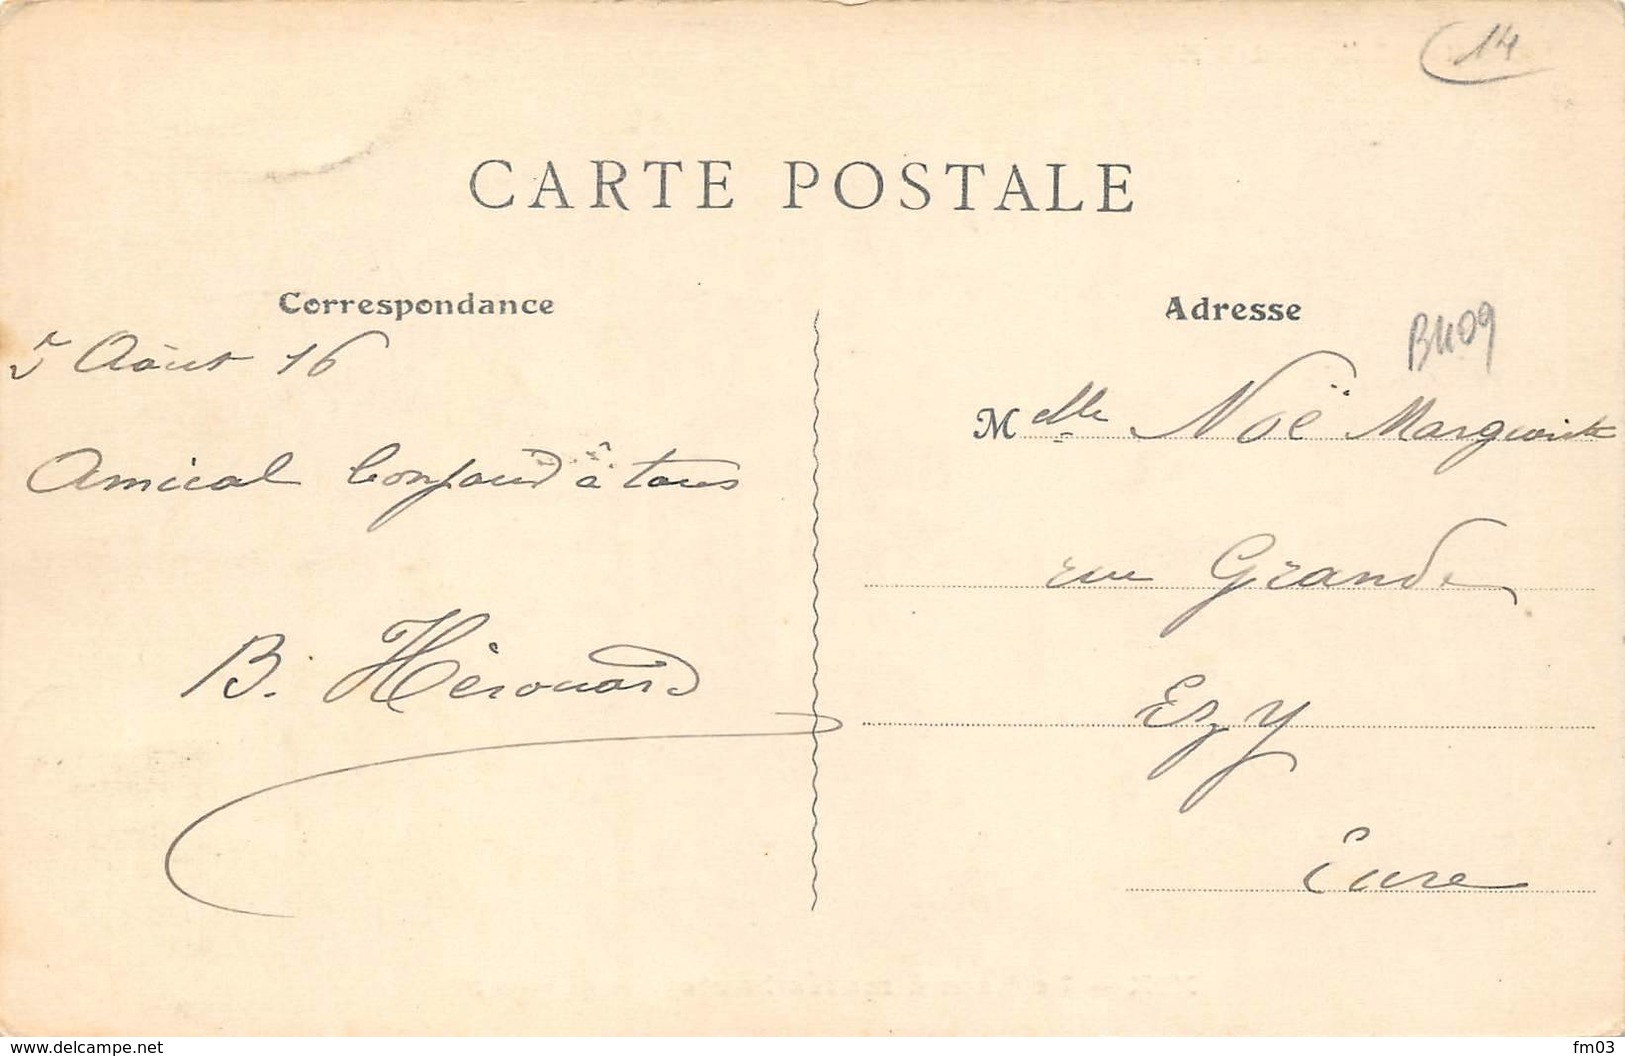 14
CARTE POSTALE
Correspondance
5 Août 16
Amical bonjour à tous
B. Hérouard
Adresse
B1109
Melle Noë Marguerite
rue Grande
Ezy
Eure
www.delcampe.net
fm03